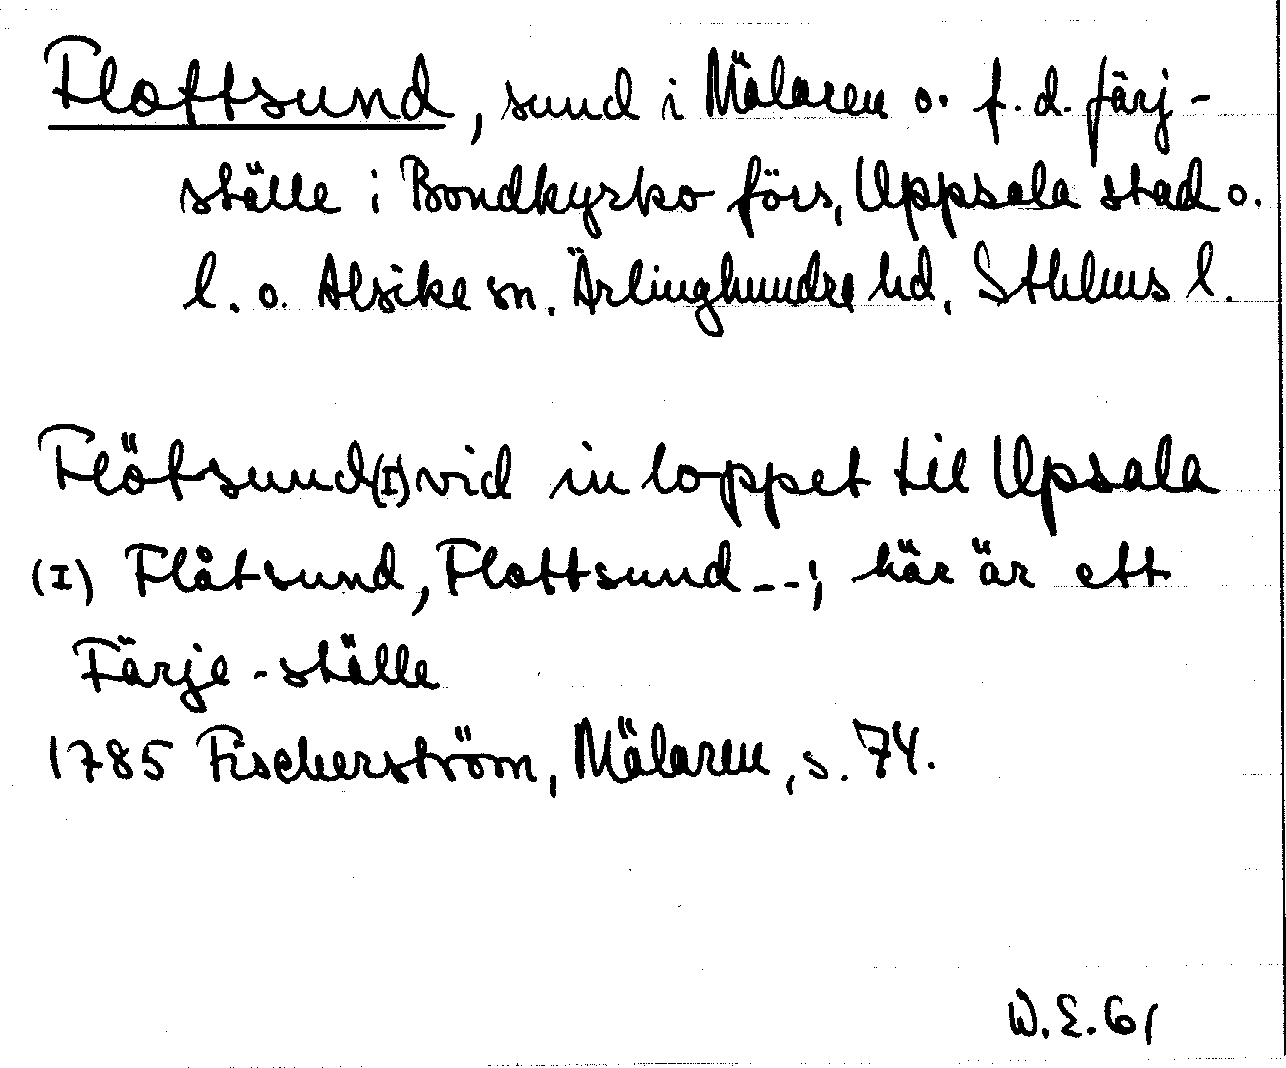 Flottsund, sund i Mälaren o. f.d. färj-
ställe i Bondkyrko förs, Uppsala stad o.
l. o. Alsike sn. Ärlinghundra hd, Sthlms l.
Flötsund(I) vid inloppet til Upsala
(I) Flåtsund, Flottsund --; här är ett
Färje-ställe
1785 Fischerström, Mälaren, s. 74.
W.E.61